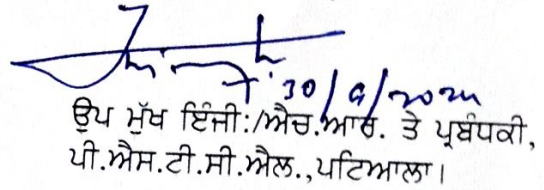 30/9/2024
ਉਪ ਮੁੱਖ ਇੰਜੀ:/ਐਚ.ਆਰ. ਤੇ ਪ੍ਰਬੰਧਕੀ,
ਪੀ.ਐਸ.ਟੀ.ਸੀ.ਐਲ.,ਪਟਿਆਲਾ।